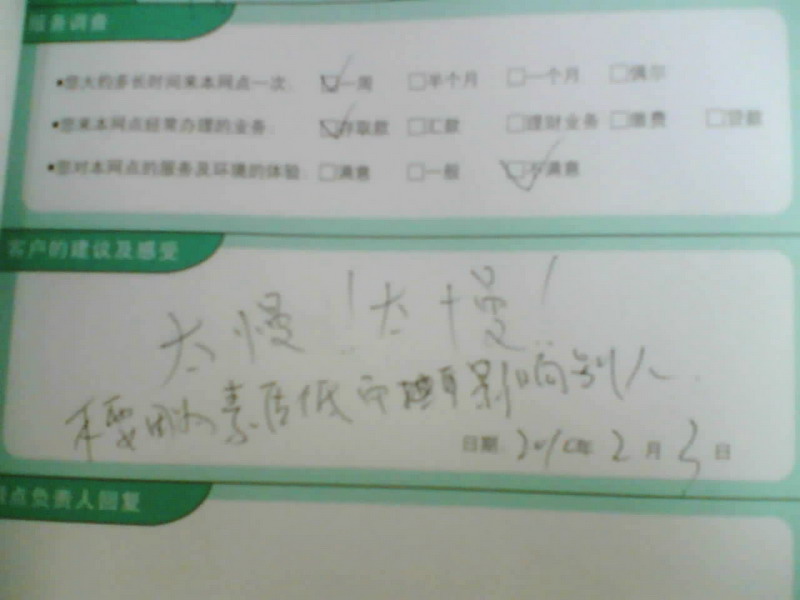 服务调查
•您大约多长时间来本网点一次: □一周 □半个月 □一个月 □偶尔
•您来本网点经常办理的业务: □存取款 □汇款 □理财业务 □缴费 □贷款
•您对本网点的服务及环境的体验: □满意 □一般 □不满意
客户的建议及感受
太慢!太慢!
不要 素质低 影响别人
日期: 2010年2月3日
网点负责人回复